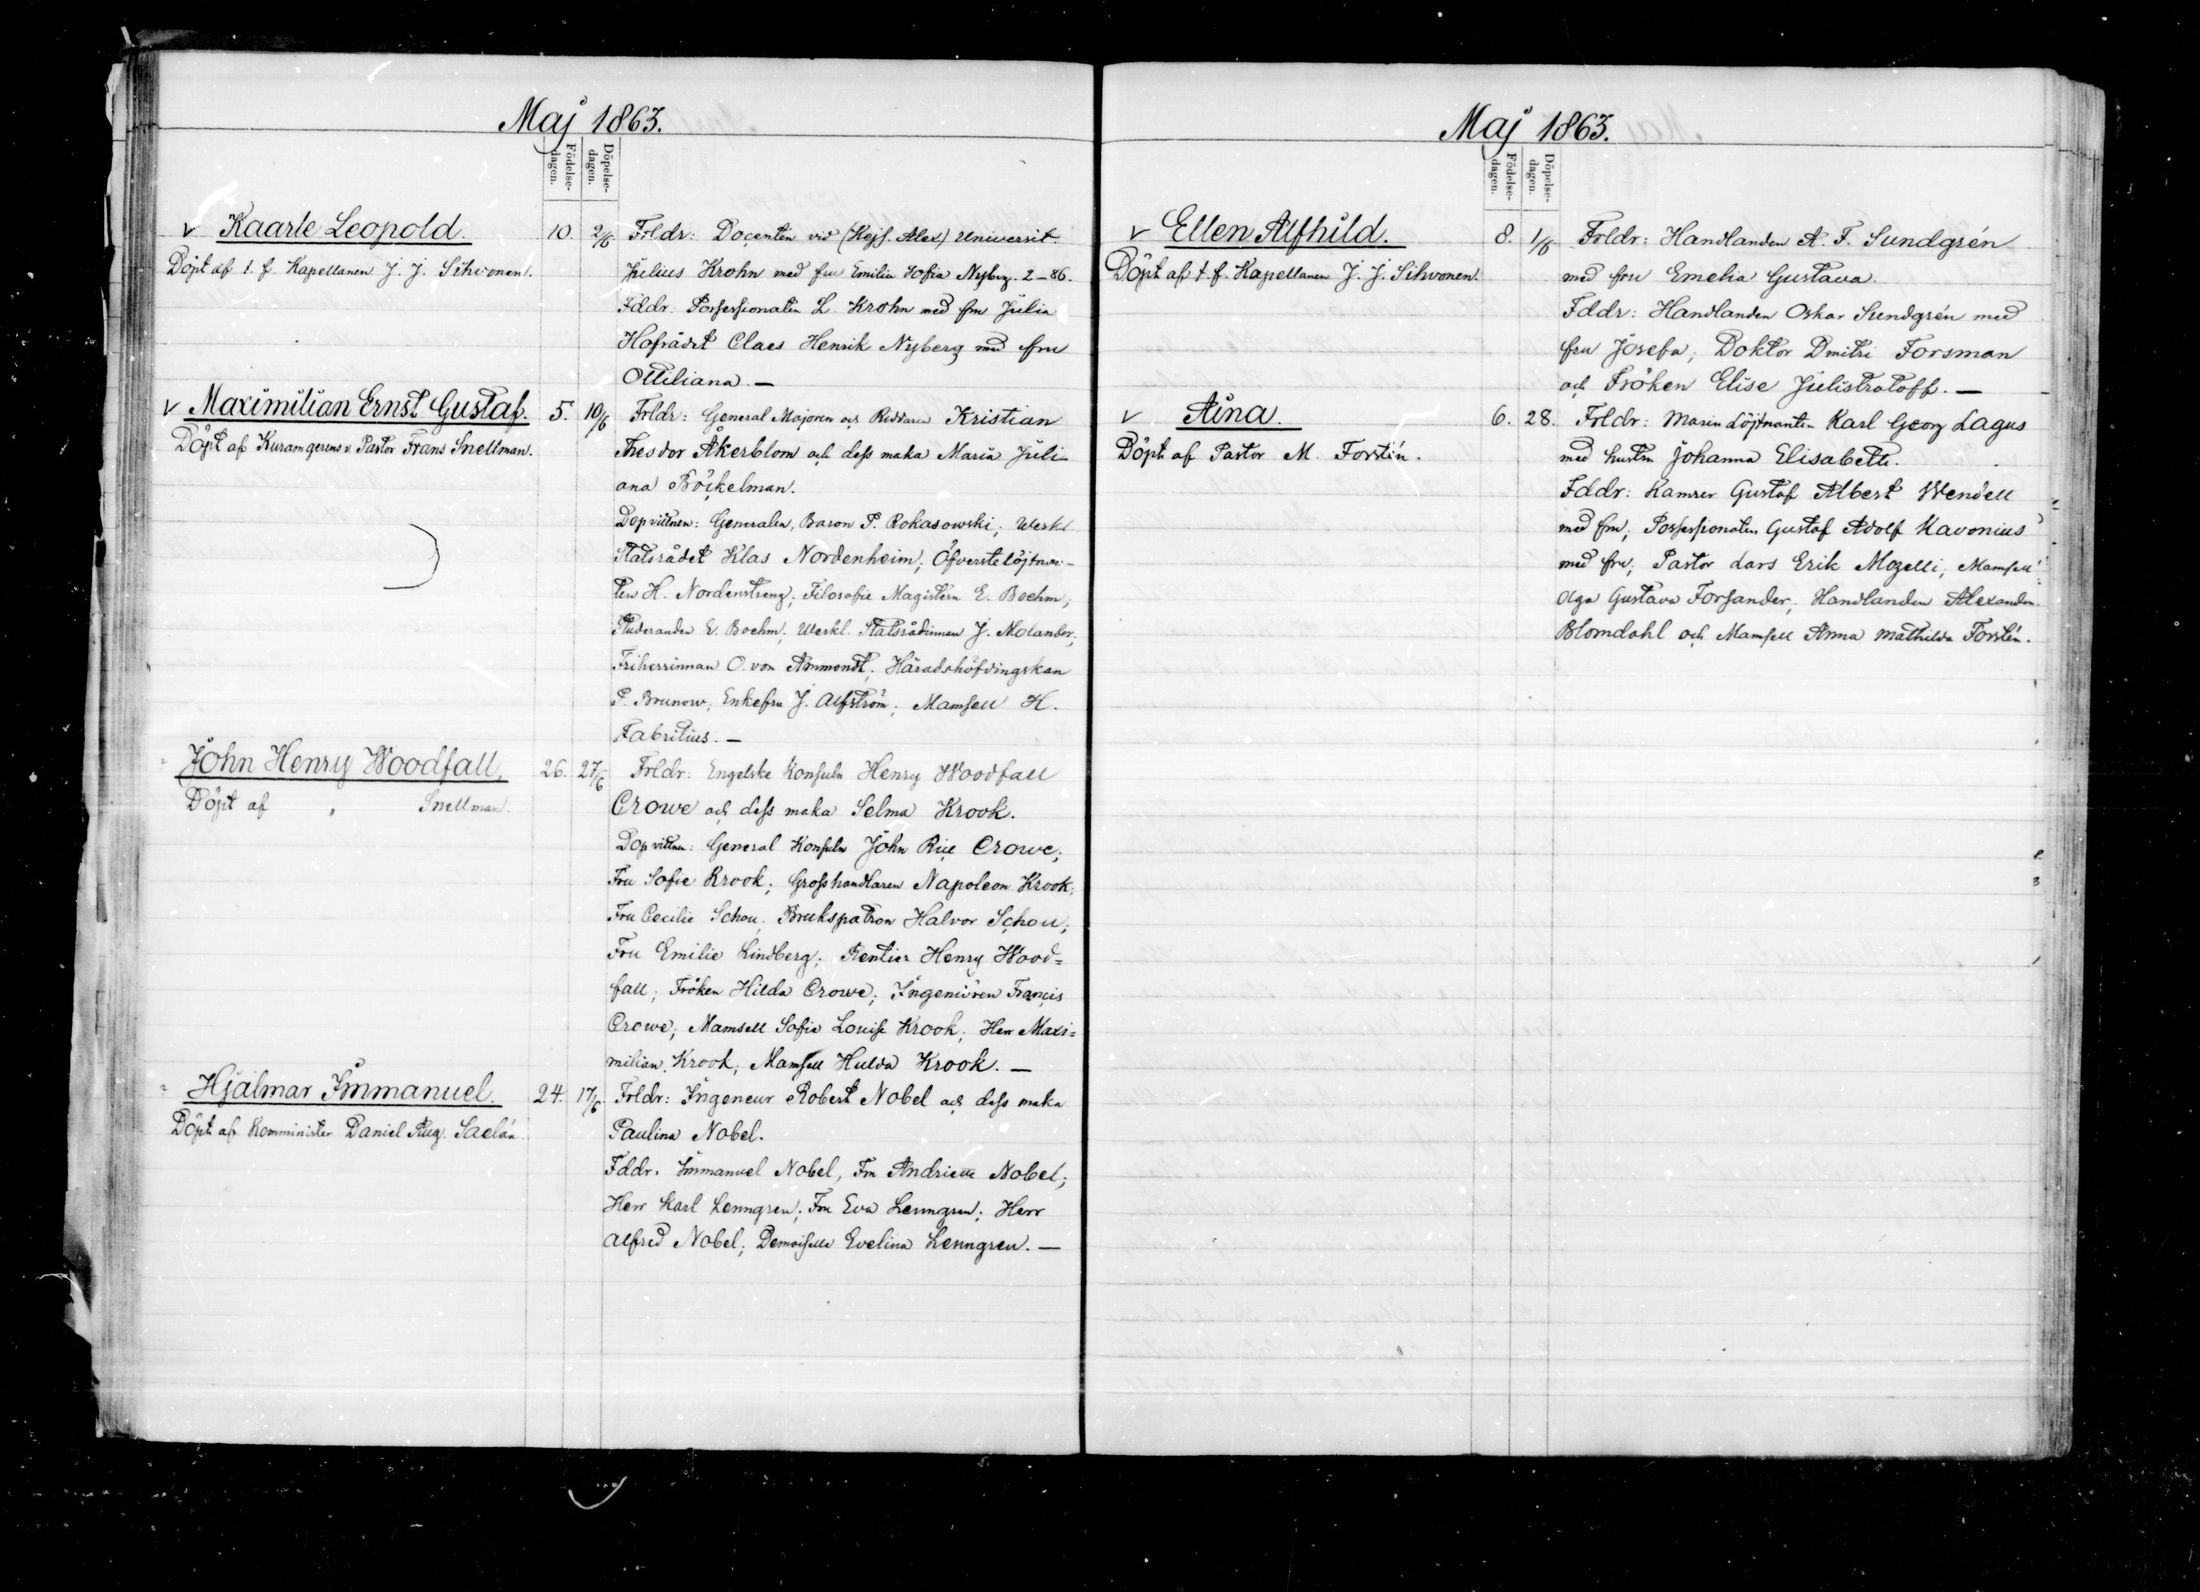 Maj 1863.
Födelse-
dagen.
Döpelse-
dagen.
v Kaarle Leopold. 10. 2/6
Döpt af t. f. Kapellanen J. J. Sihvonen.
Frldr: Docenten vid (Kejs. Alex) Universit.
Julius Krohn med fru Emilia Sofia Nyberg. 2-86.
Fddr. Possessionaten L. Krohn med fru Julia
Hofrådet Claes Henrik Nyberg med fru
Ottiliana. —
v Maximilian Ernst Gustaf. 5. 10/6
Döpt af Pastor Frans Snellman.
Frldr: General Majoren och Riddaren Kristian
Theodor Åkerblom och dess maka Maria Juli-
ana Böckelman.
Dopvittnen: Generalen, Baron P. Rokasowski; Werkl
Statsrådet Klas Nordenheim; Öfverstelöjtnan-
ten H. Nordenstreng; Filosofie Magistern E. Boehm;
Studeranden E. Boehm; Werkl. Statsrådinnan J. Molander;
Friherrinnan O. von Ammondt; Häradshöfdingskan
P. Brunow; Enkefru J. Alfström; Mamsell H.
Fabritius. —
John Henry Woodfall. 26. 27/6
Döpt af " Snellman.
Frldr: Engelske Konsuln Henry Woodfall
Crowe och dess maka Selma Krook.
Dopvittnen: General Konsuln John Rice Crowe;
Fru Sofie Krook; Grosshandlaren Napoleon Krook;
Fru Cecilie Schou; Brukspatron Halvor Schou;
Fru Emilie Lindberg; Rentier Henry Wood=
fall; Fröken Hilda Crowe; Ingeniören Francis
Crowe; Mamsell Sofie Louise Krook; Herr Maxi=
milian Krook; Mamsell Hulda Krook. —
Hjalmar Immanuel. 24. 17/6
Döpt af Komminister Daniel Aug. Saelán.
Frldr: Ingeneur Robert Nobel och dess maka
Paulina Nobel.
Fddr. Immanuel Nobel, Fru Andriette Nobel;
Herr Karl Lenngren; Fru Eva Lenngren; Herr
Alfred Nobel; Demoiselle Evelina Lenngren. —
Maj 1863.
Födelse-
dagen.
Döpelse-
dagen.
v Ellen Alfhild. 8. 1/6
Döpt af t. f. Kapellanen J. J. Sihvonen.
Frldr: Handlanden A. F. Sundgrén
med fru Emelia Gustava.
Fddr: Handlanden Oskar Sundgrén med
fru Josefa; Doktor Dmitri Forsman
och Fröken Elise Julistratoff. —
v Aina. 6. 28.
Döpt af Pastor M. Forstén.
Frldr: Marin Löjtnanten Karl Georg Lagus
med hustru Johanna Elisabeth.
Fddr: Kamrer Gustaf Albert Wendell
med fru; Possessionaten Gustaf Adolf Kavonius
med fru; Pastor Lars Erik Mozelli; Mamsell
Olga Gustava Forsander; Handlanden Alexander
Blomdahl och Mamsell Anna Mathilda Forstén.